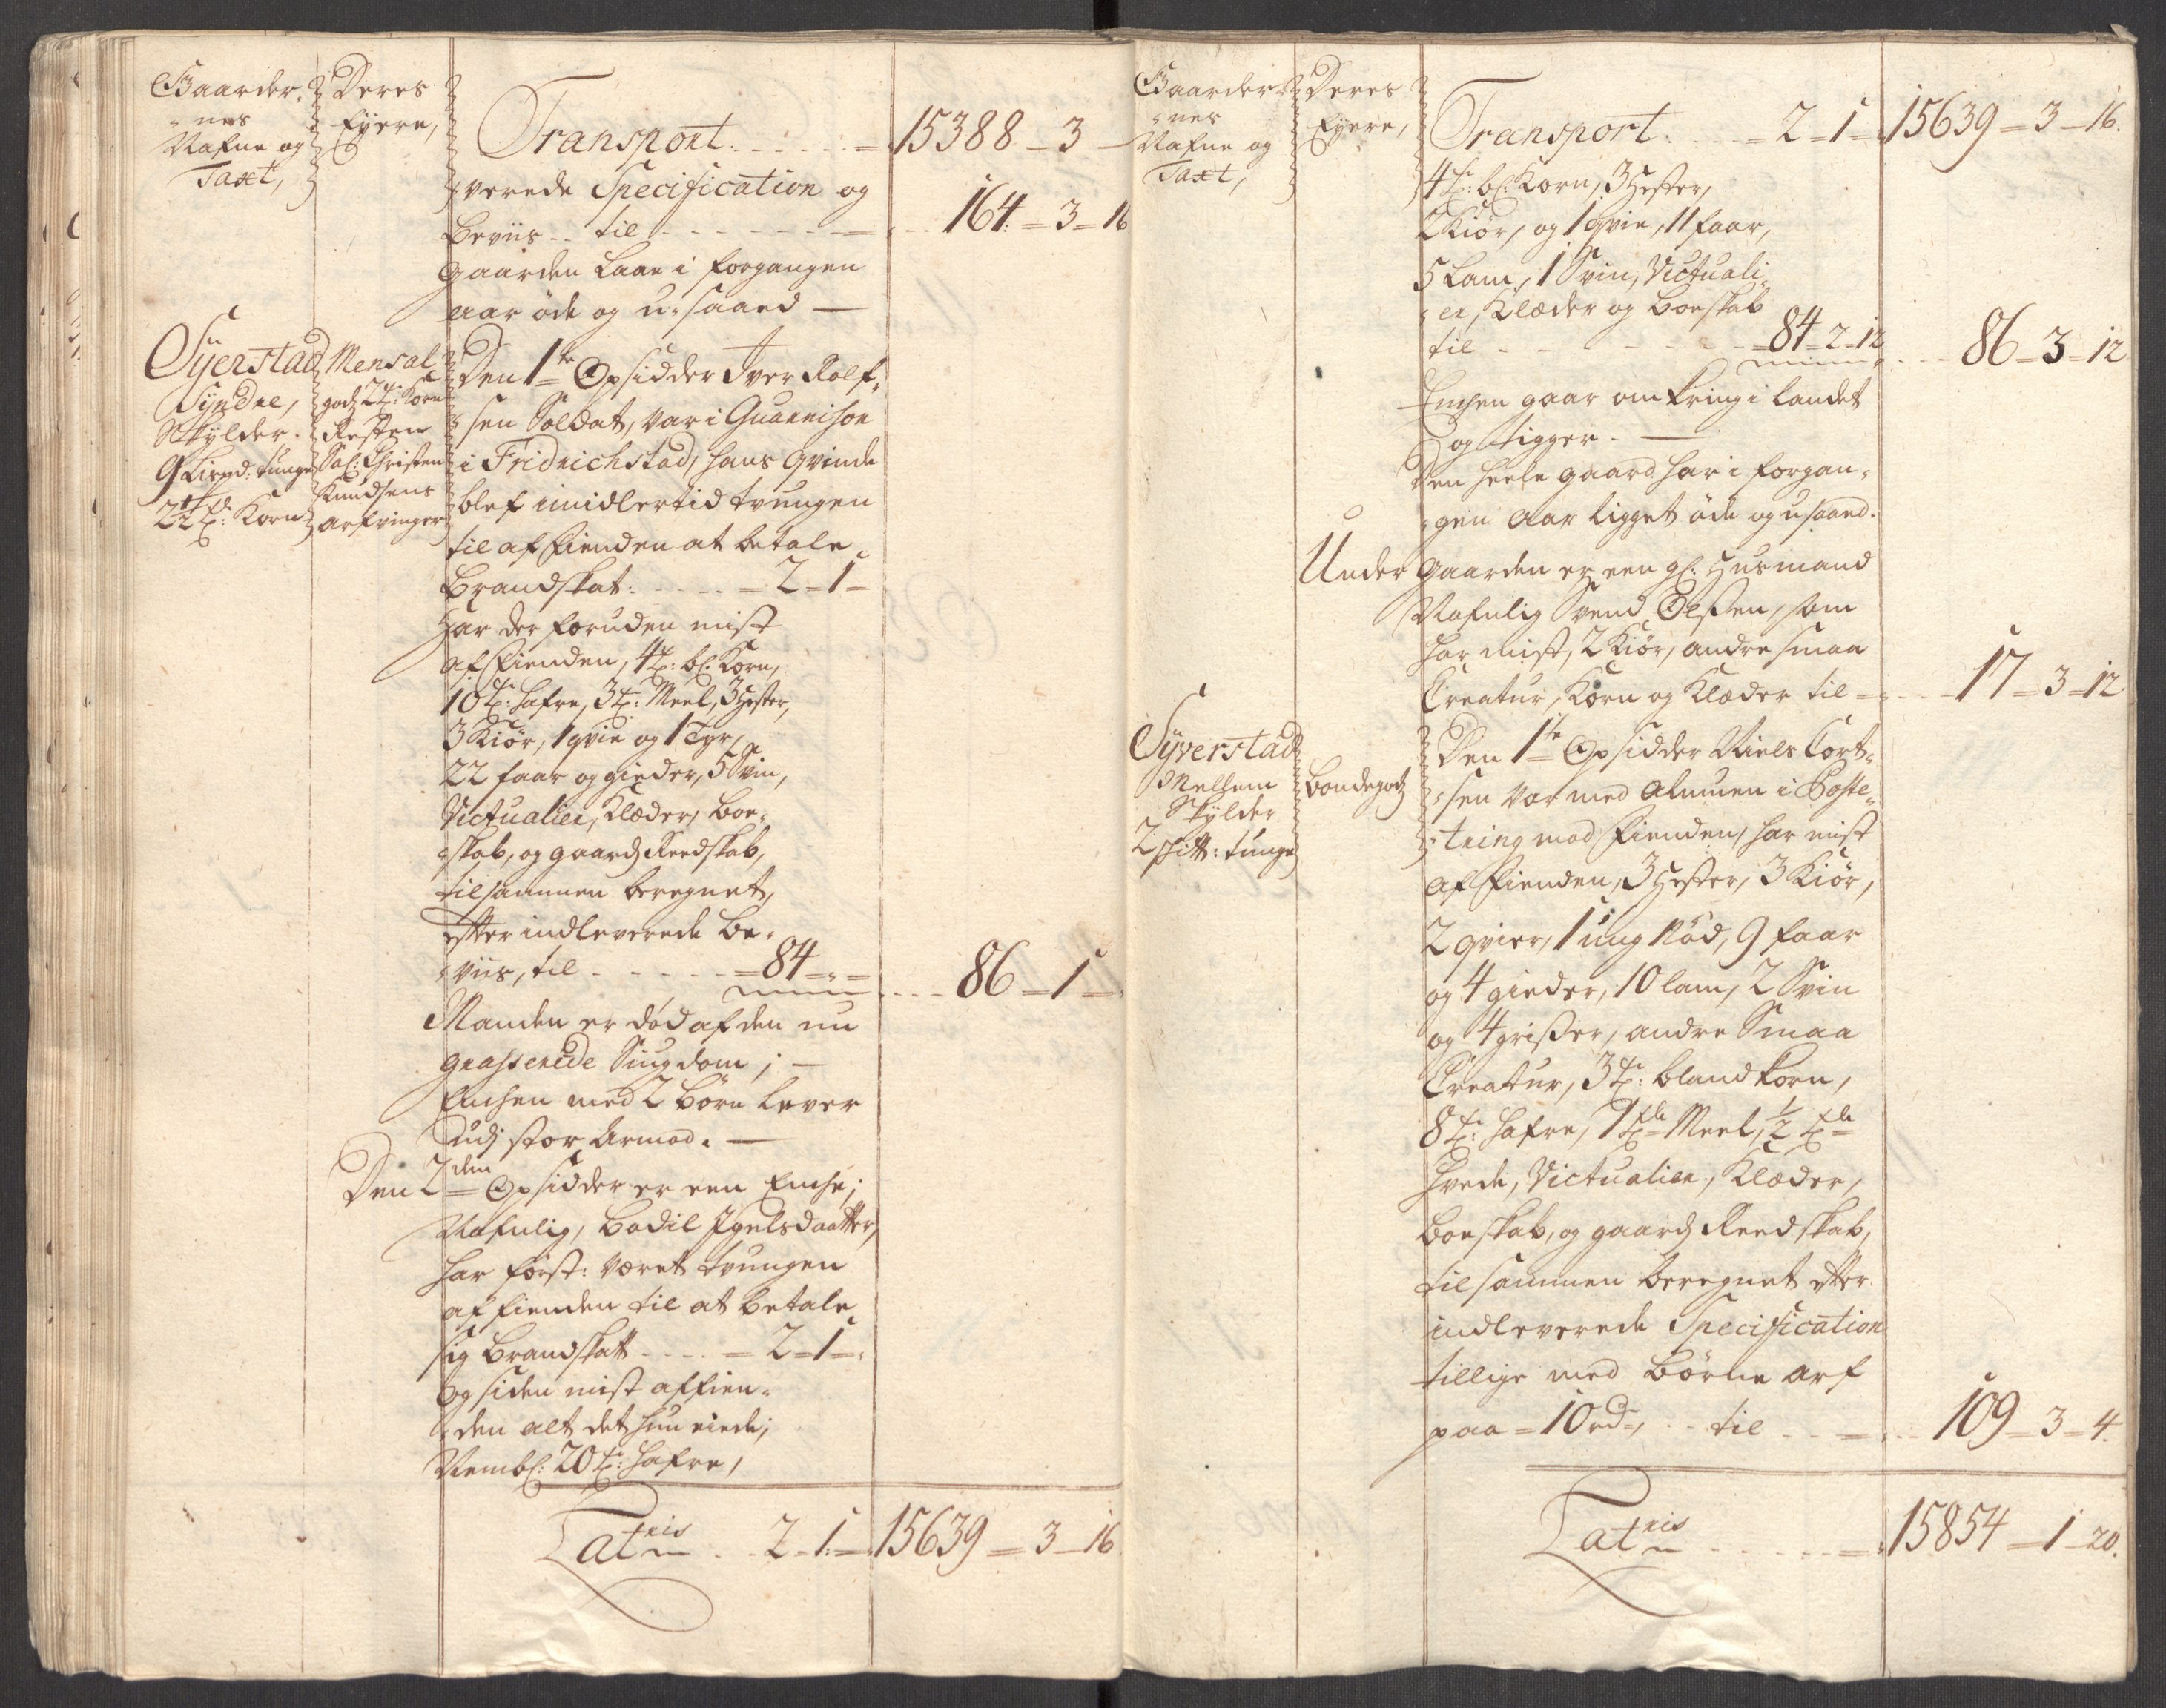 Gaarder-
nes
Nafne og
Taxt,
Deres
Eyere,
Transport. . . . . = 15388 – 3 –
verede Specification og
Beviis . . til . . . . . . . 164 = 3 = 16
gaarden Laae i forgangen
aar öde og u-saaed —
Syerstad
Syndre,
Skylder.
9 Lispd: tunge
2½ Td: Korn
Mensal
godz 2 Td: Korn
Resten
Sal: Christen
Knudsens
arfvinger
Den 1te Opsidder Iver Rolf-
sen Soldat, var i Guarnison
i Fridrichstad, hans Qvinde
blef imidlertid tvungen
til af Fienden at betale
Brandskat: . . . . = 2 – 1 –
Har der foruden mist
af Fienden, 4 Td: bl: Korn,
10 Td: hafre, 3 Td: Meel, 3 Hester,
3 Kiör, 1 qvie og 1 Tyr,
22 faar og gieder, 5 Svin,
Victualier, Klæder, boe-
skab, og gaardz Reedskab,
tilsammen beregnet,
efter indleverede Be-
viis, til . . . . . = 84 = „ = . . . 86 – 1 –
Manden er död af den nu
grasserede Siugdom ; —
Enchen med 2 börn lever
udj stor Armod. —
Den 2den Opsidder er een Enche;
Nafnlig, Bodil Igelsdaatter,
har först: været tvungen
af fienden til at betale
sig Brandskatt . . . . = 2 – 1 – .
Og siden mist af fien-
den alt det hun eiede;
Nembl: 20 Td: hafre,
Latris . . 2 – 1 – 15639 – 3 – 16
Gaarder-
nes
Nafne og
Taxt,
Deres
Eyere,
Transport. . . . = 2 – 1 – 15639 – 3 – 16.
4 Td: bl: Korn, 3 Hester,
2 Kiör, og 1 qvie, 11 faar,
5 Lam, 1 Svin, Victuali-
er, Klæder og boeskab
til . . . . . . . 84 – 2 – 12 . . . 86 – 3 – 12
Enchen gaar omkring i Landet
og tigger. —
Den heele gaard har i forgan-
gen Aar ligget öde og usaaed.
Under gaarden er een gl: Husmand
Nafnlig Svend Olssen, som
har mist, 2 Kiör, andre smaa
Creatur, Korn og Klæder til = . . . 17 – 3 – 12
Syverstad
Mellem
Skylder
2 skitt: tunge
bondegodz
Den 1te Opsidder Niels Cort-
sen var med Almuen i Poste-
tring mod Fienden, har mist
af Fienden, 3 Hester, 3 Kiör,
2 qvier, 1 ung Nöd, 9 faar
og 4 gieder, 10 lam, 2 Svin
og 4 grisser, andre Smaa
Creatur, 3 Td: blandkorn,
8 Td: hafre, 1 Tde Meel, ½ Tde
Hvede, Victualier, Klæder,
boeskab, og gaardz Reedskab,
tilsammen beregnet efter
indleverede Specification
tillige med börne arf
paa = 10 rd, . . til . . . = . . . 109 – 3 – 4.
Latris . . . . . = 15854 – 1 – 20.